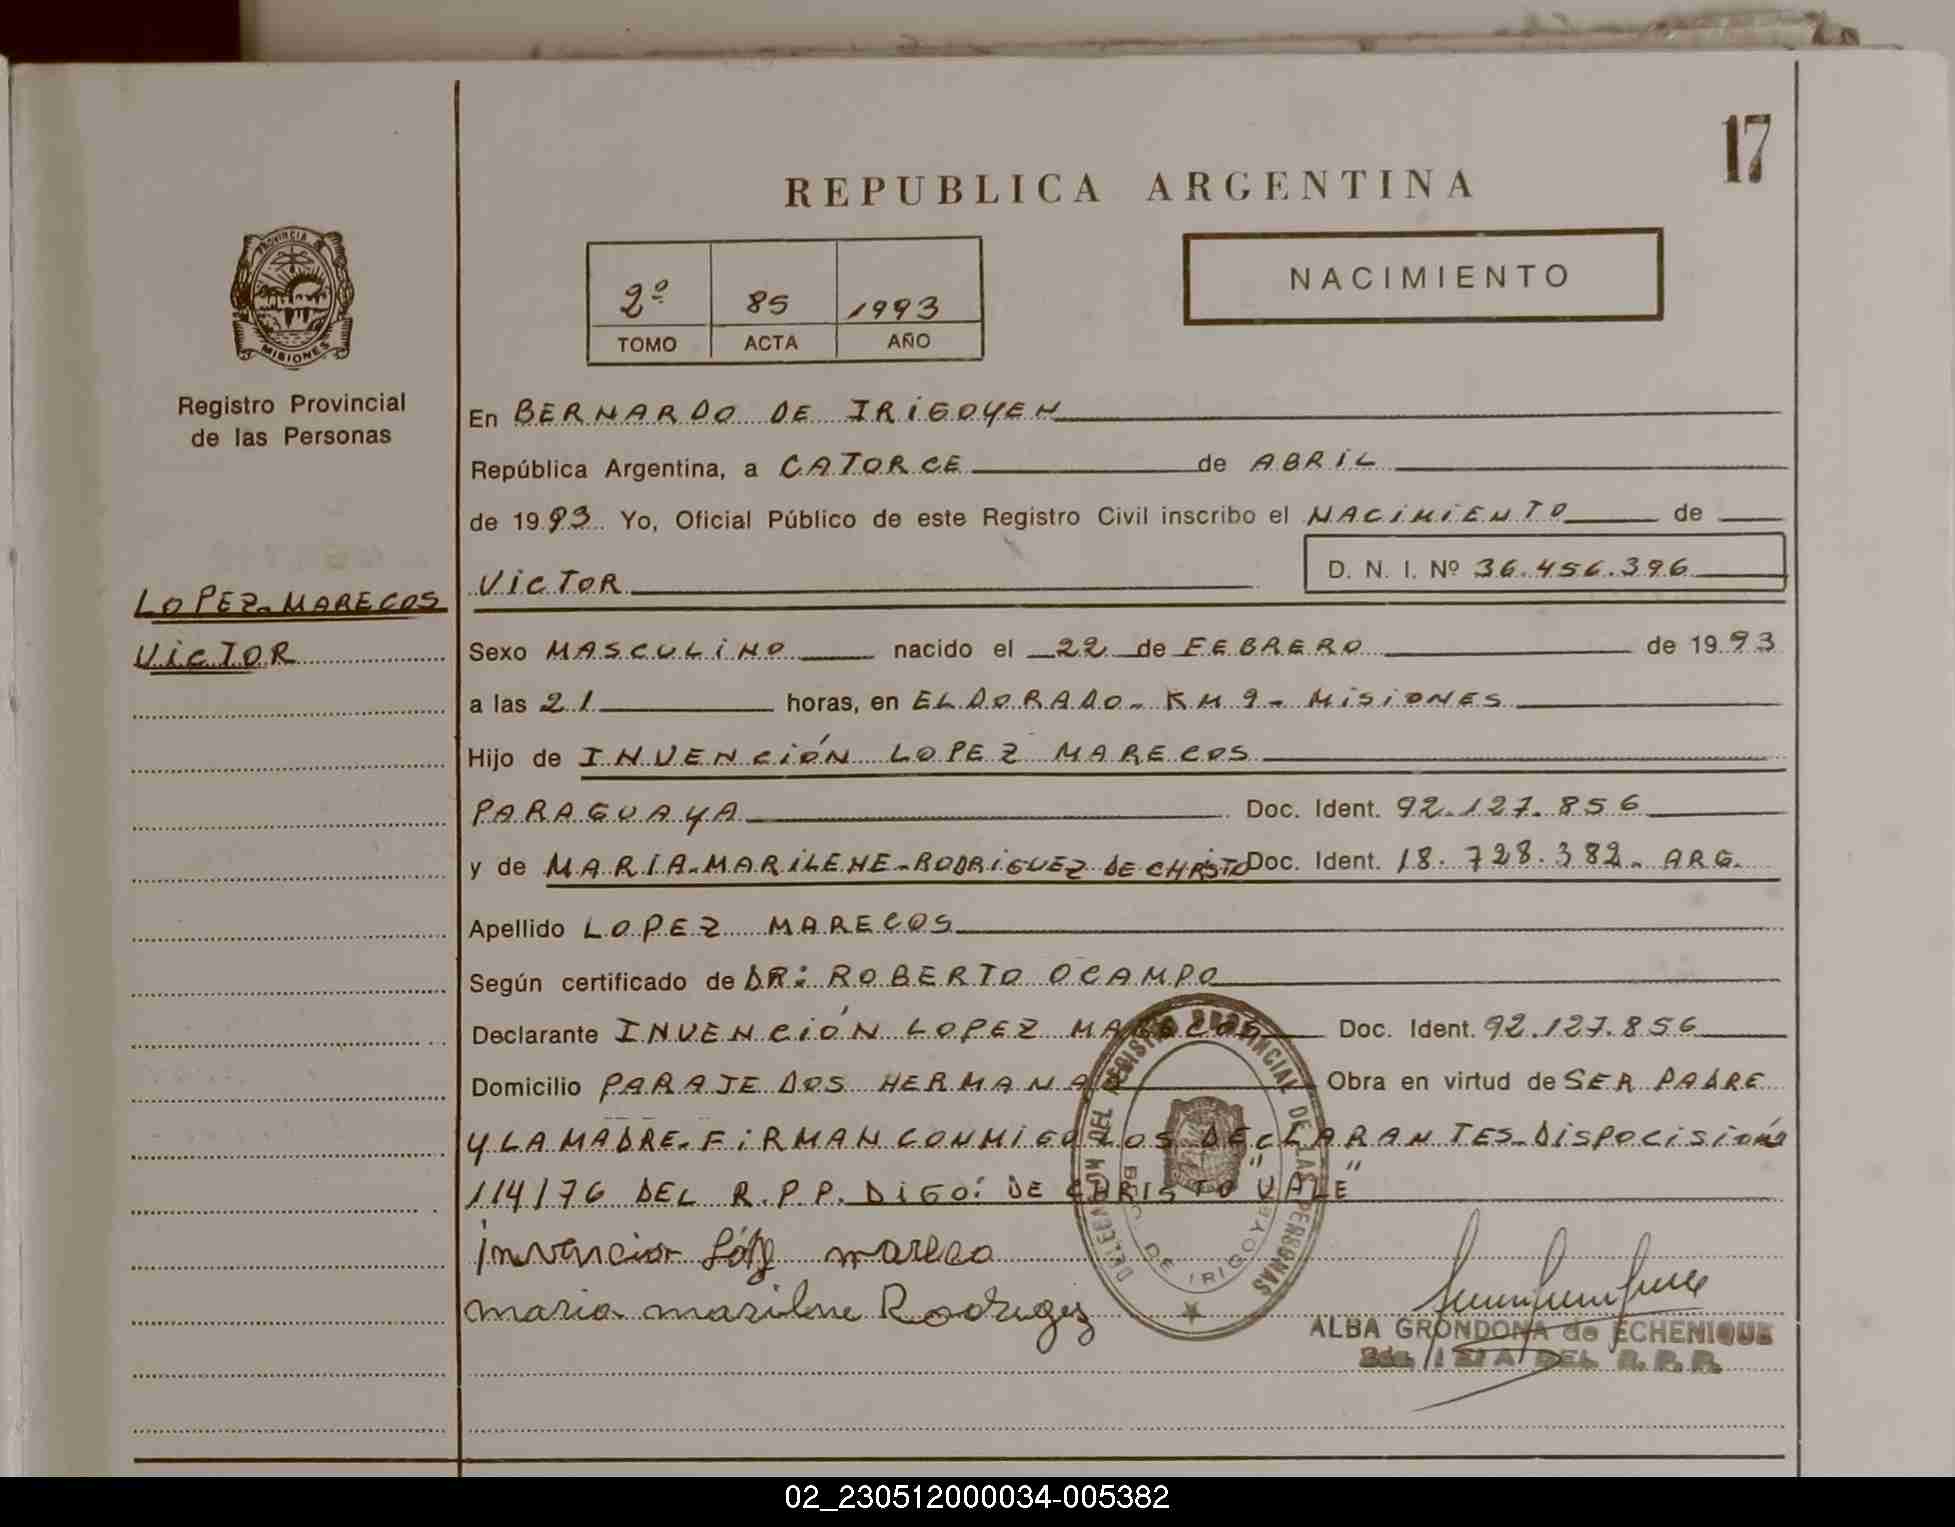 17
REPUBLICA ARGENTINA
PROVINCIA DE
MISIONES
Registro Provincial
de las Personas
2º 85 1993
TOMO ACTA AÑO
NACIMIENTO
En BERNARDO DE IRIGOYEN
República Argentina, a CATORCE de ABRIL
de 1993 Yo, Oficial Público de este Registro Civil inscribo el NACIMIENTO de
LOPEZ-MARECOS
VICTOR
VICTOR
D. N. I. Nº 36.456.396
Sexo MASCULINO nacido el 22 de FEBRERO de 1993
a las 21 horas, en ELDORADO- KM 9- MISIONES
Hijo de INVENCIÓN LOPEZ MARECOS
PARAGUAYA Doc. Ident. 92.127.856
y de MARIA-MARILENE-RODRIGUEZ DE CHRISTO Doc. Ident. 18.728.382- ARG.
Apellido LOPEZ MARECOS
Según certificado de DR: ROBERTO OCAMPO
Declarante INVENCIÓN LOPEZ MARECOS Doc. Ident. 92.127.856
Domicilio PARAJE DOS HERMANAS Obra en virtud de SER PADRE
Y LA MADRE-FIRMAN CONMIGO LOS DECLARANTES-DISPOCISIÓN
114/76 DEL R.P.P. DIGO: DE CHRISTO "VALE"
invencion López mareco
maria marilene Rodrigez
DELEGACION DEL REGISTRO PROVINCIAL DE LAS PERSONAS
BDO. DE IRIGOYEN
ALBA GRONDONA de ECHENIQUE
DEL R.P.P.
02_230512000034-005382